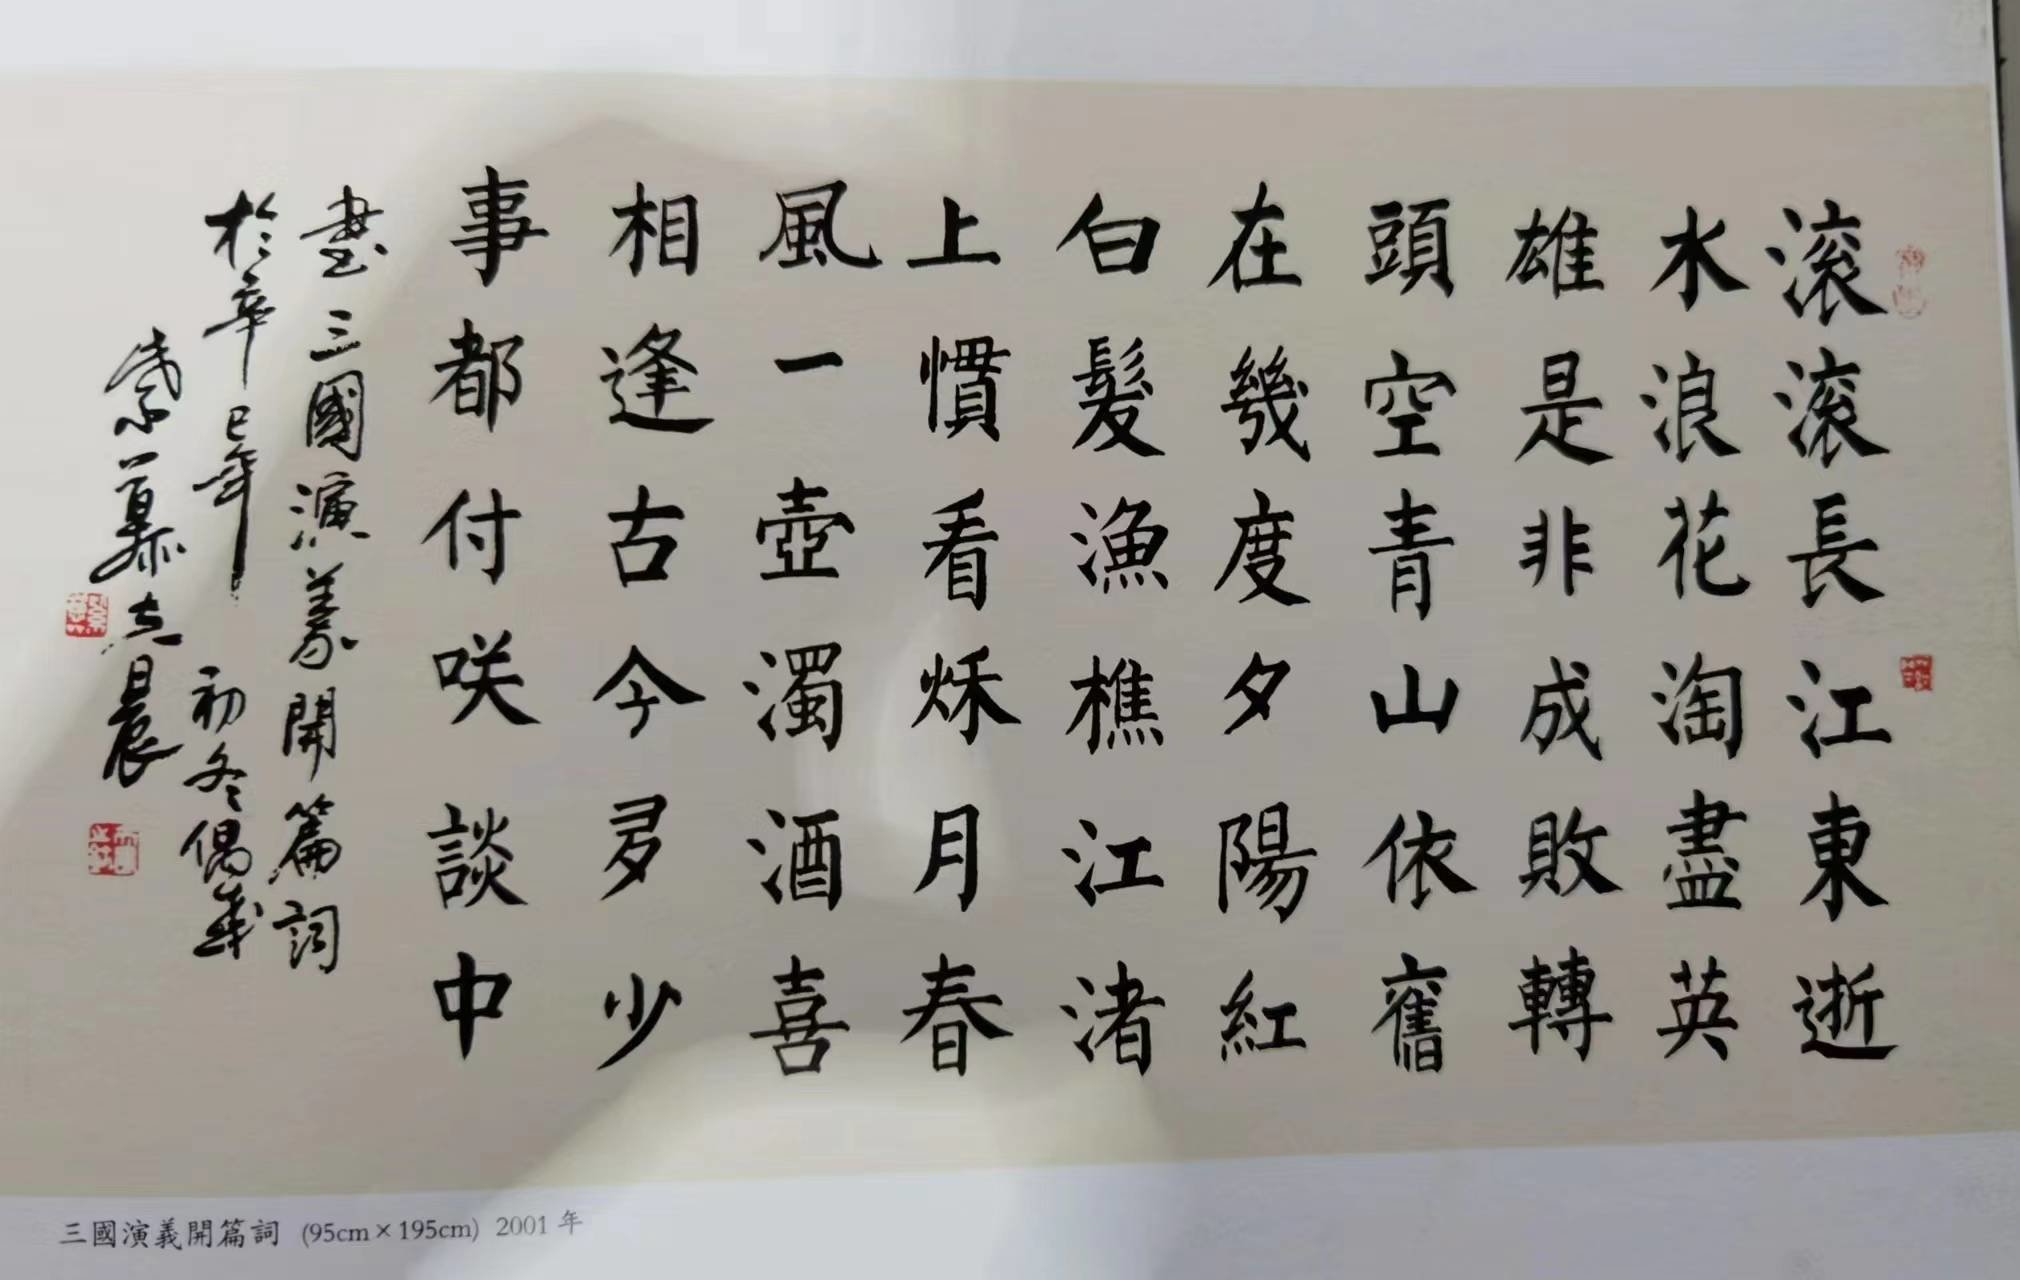 滚滚長江東逝
水浪花淘盡英
雄是非成敗轉
頭空青山依舊
在幾度夕陽紅
白髮漁樵江渚
上慣看秌月春
風一壺濁酒喜
相逢古今多少
事都付咲談中
書三國演義開篇詞
於辛巳年初冬偶筆
三國演義開篇詞 (95cm×195cm) 2001年